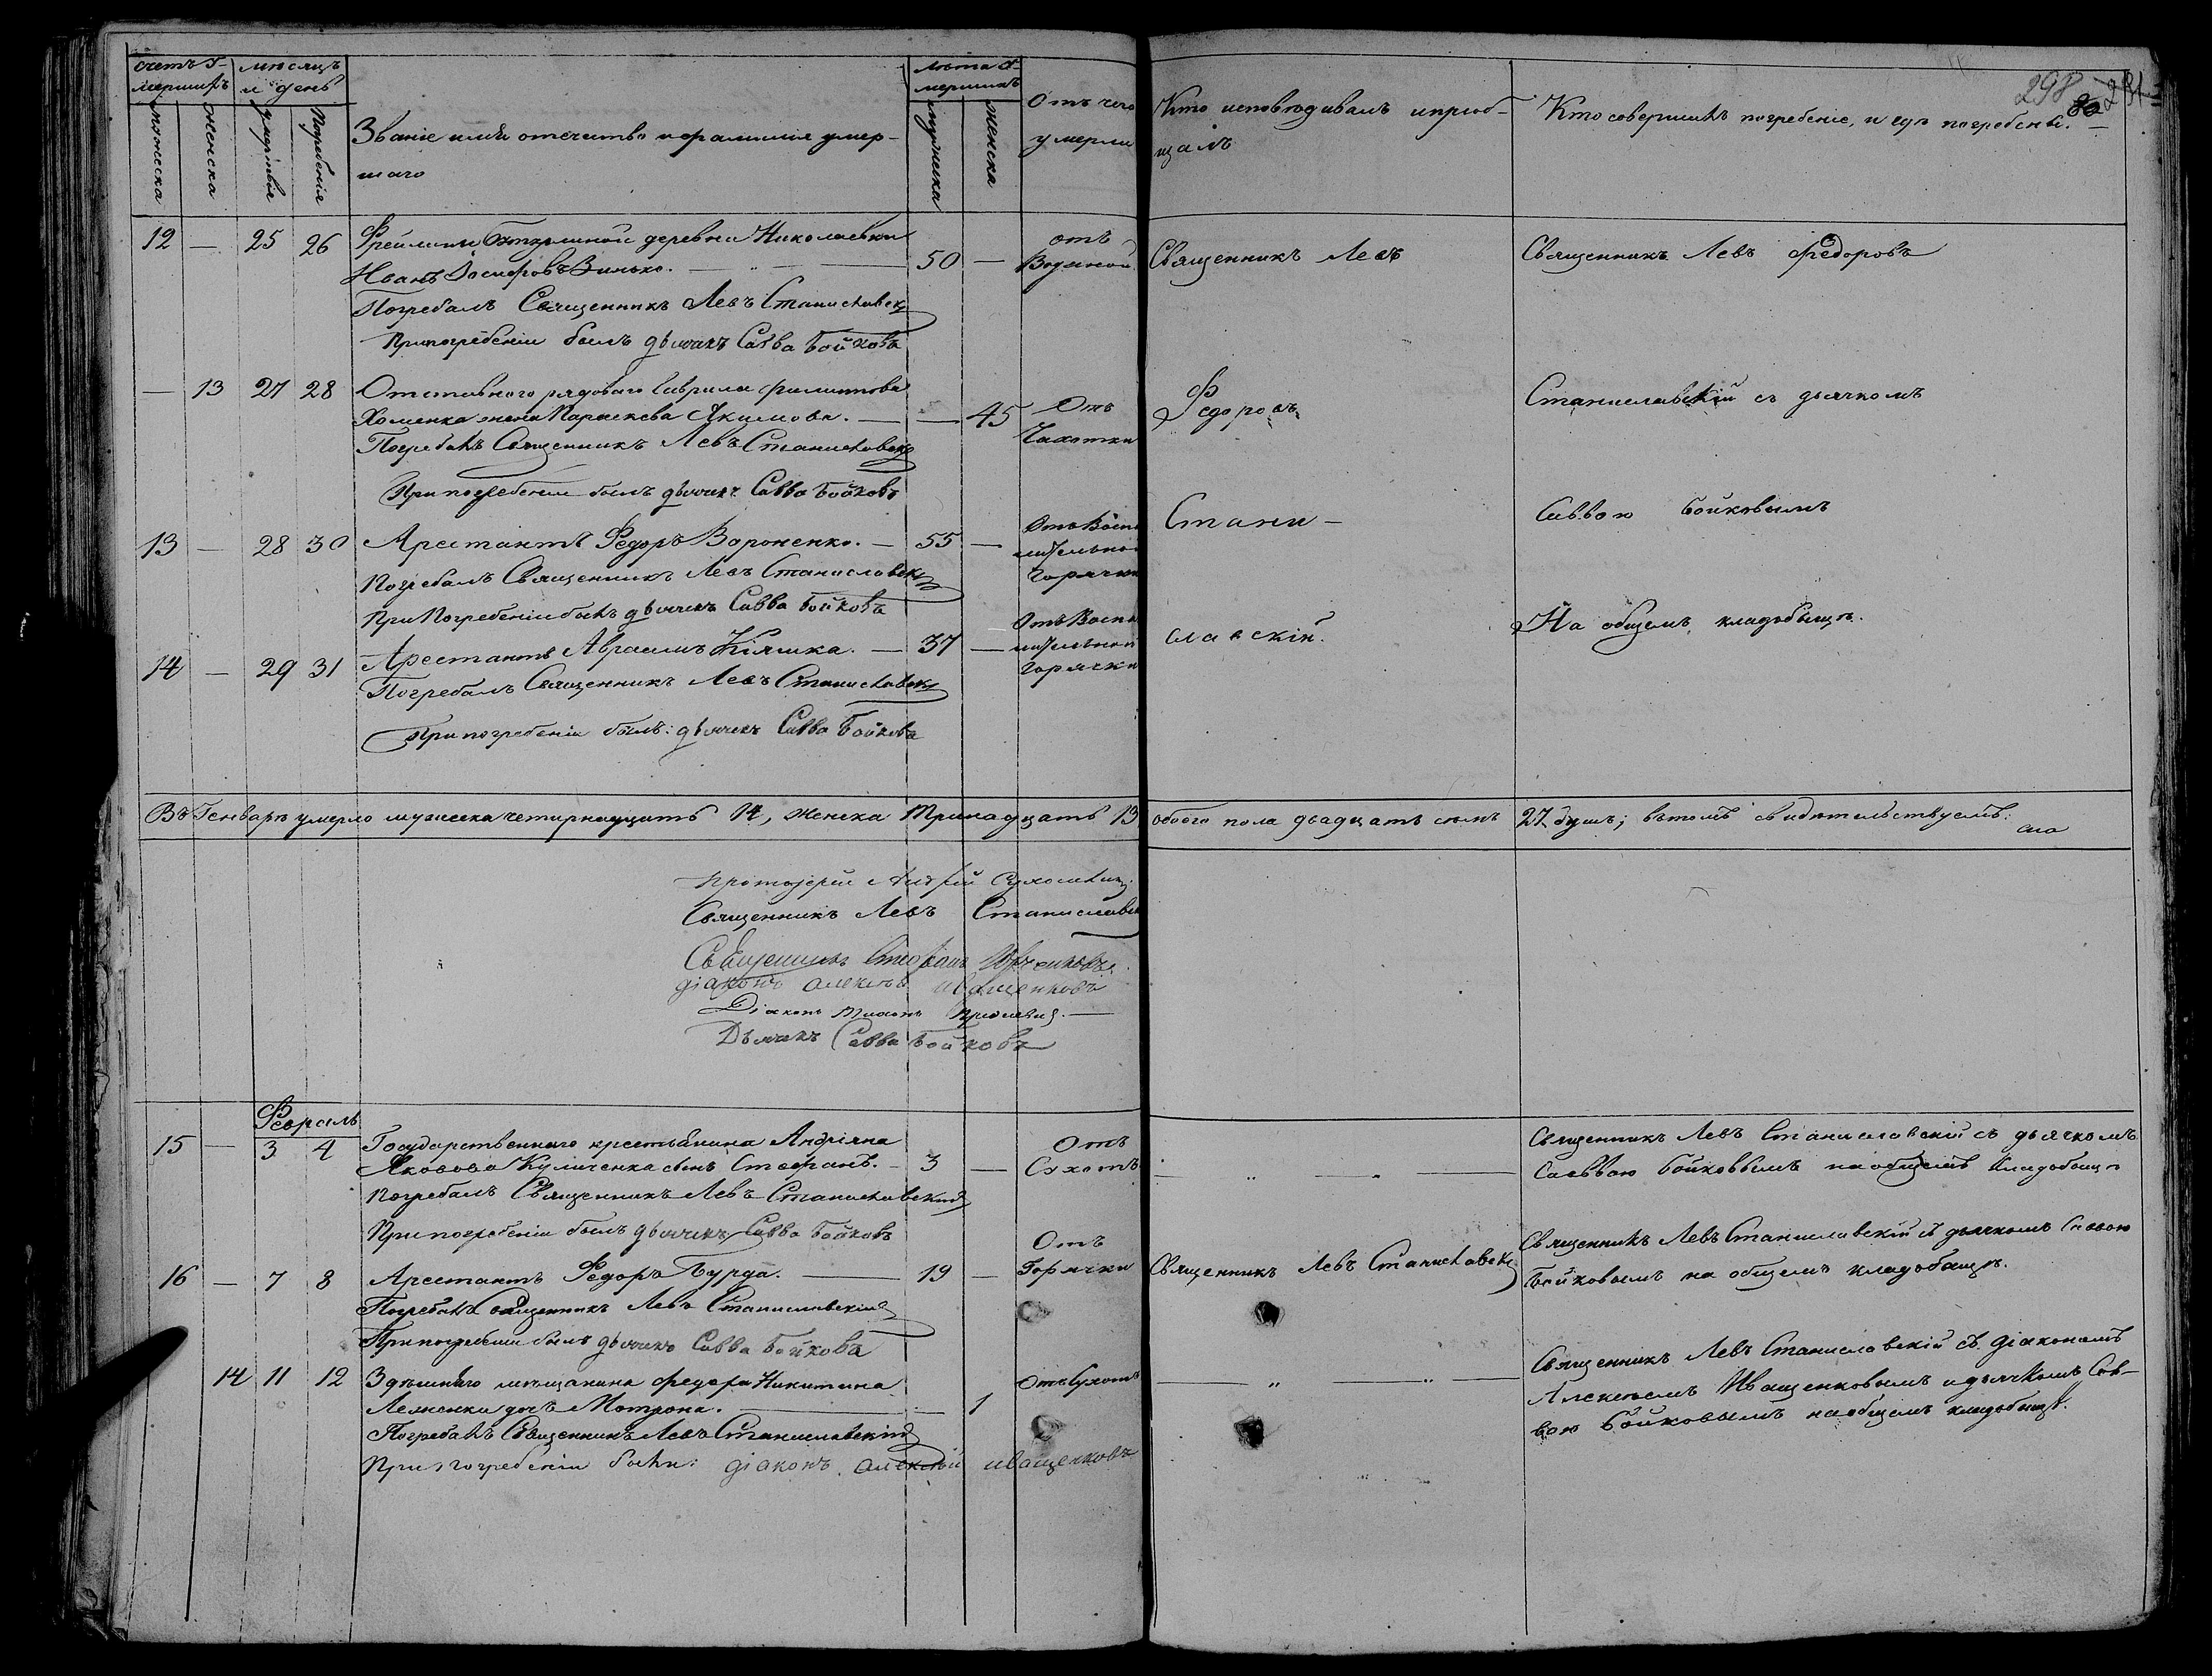 счетъ у-
мершихъ
мужеска
женска
месяцъ
и день
умертвія
Погребенія
Званіе имя и отечество и фамилія умер-
шаго
лета у-
мершихъ
мужеска
женска
Отъ чего
умерли
Кто исповедивалъ и пріоб-
щалъ
Кто совершилъ погребеніе, и где погребены.
298
12 — 25 26
деревни Николаевки
Иванъ Іосифовъ Зинько. — 50 —
отъ
Водяной
Священникъ Левъ
Священникъ Левъ Федоровъ
Погребалъ Священникъ Левъ Станиславскій
При погребеніи былъ дьячекъ Савва Бойковъ
— 13 27 28
Отставного рядоваго Гаврила Филипова
Хоменка жена Параскева Якимова. — — 45
Отъ
Чахотки
Федоровъ
Станиславскій съ дьячкомъ
Погребалъ Священникъ Левъ Станиславскій
При погребеніи былъ дьячекъ Савва Бойковъ
13 — 28 30
Арестантъ Федоръ Вороненко. — 55 —
Отъ Воспа
лительной
горячки
Стани-
Саввою Бойковымъ
Погребалъ Священникъ Левъ Станиславскій
При Погребеніи былъ дьячекъ Савва Бойковъ
14 — 29 31
Арестантъ Авраамъ Кіяшка. — 37 —
Отъ Воспа
лительной
горячки
славскій.
На общемъ кладбыще.
Погребалъ Священникъ Левъ Станиславскій
При погребеніи былъ: дьячекъ Савва Бойковъ
Въ Генваре умерло мужеска четирнадцать 14, женска Тринадцать 13 обоего пола двадцать семь 27 душъ; въ томъ свидетельствуемъ:
Протоіерей Андрей
Священникъ Левъ Станиславскій
Священникъ Стефанъ
діаконъ алексей иващенковъ
Діаконъ
Дьячекъ Савва Бойковъ
Февраль
15 — 3 4
Государственнаго крестьянина Андріяна
Яковова Куличенка сынъ Стефанъ. — 3 —
Отъ
Сухотъ
Священникъ Левъ Станиславскій съ дьячкомъ
Саввою Бойковымъ на общемъ кладбище
Погребалъ Священникъ Левъ Станиславскій
При погребеніи былъ дьячекъ Савва Бойковъ
16 — 7 8
Арестантъ Федоръ Бурда. — 19 —
Отъ
Горячки
Священникъ Левъ Станиславскій
Священникъ Левъ Станиславскій съ дьячкомъ Саввою
Бойковымъ на общемъ кладбище.
Погребалъ Священникъ Левъ Станиславскій
При погребеніи былъ дьячекъ Савва Бойковъ
14 11 12
Здешнего мещанина Федора Никитина
дочь Мотрона. — — 1
Отъ Сухотъ
Священникъ Левъ Станиславскій съ діакономъ
Алексеемъ Иващенковымъ и дьячкомъ Сав-
вою Бойковымъ на общемъ кладбище.
Погребалъ Священникъ Левъ Станиславскій
При погребеніи были: діаконъ алексей иващенковъ